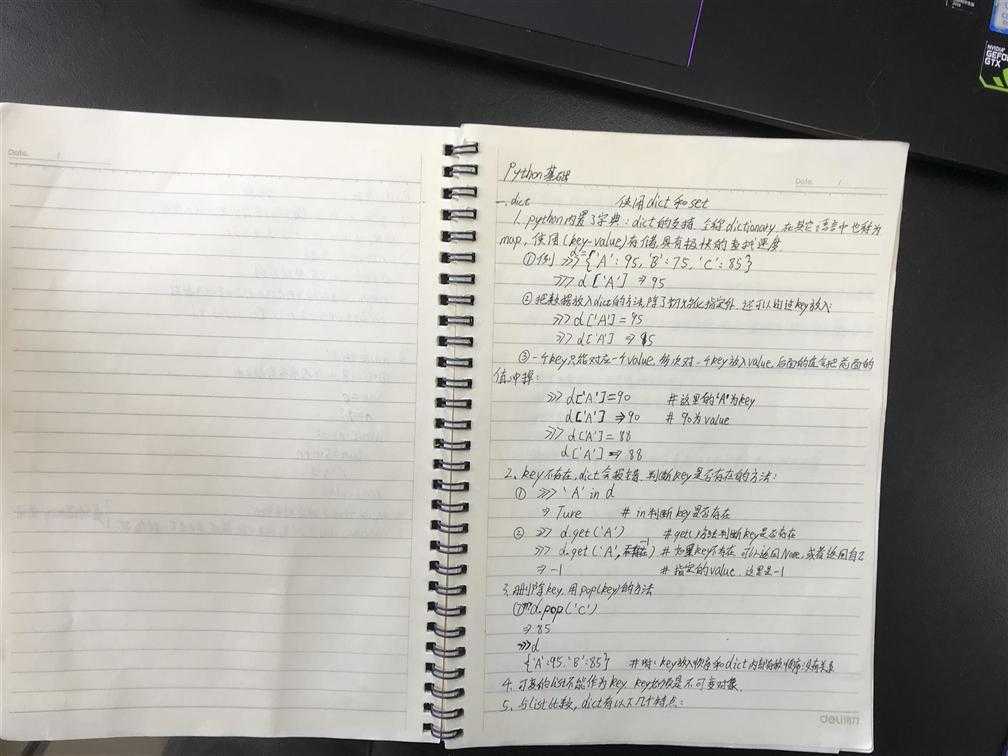 Date.
NVIDIA
GEFORCE
GTX
Python基础
Date.
一.dict 使用dict和set
1. python内置了字典:dict的支持,全称dictionary,在其它语言中也称为
map,使用(key-value)存储,具有极快的查找速度
①例 >>> d={'A':95,'B':75,'C':85}
>>> d['A'] ⇒ 95
②把数据放入dict的方法,除了初始化指定外,还可以通过key放入:
>>> d['A']=95
>>> d['A'] ⇒ 95
③一个key只能对应一个value,多次对一个key放入value,后面的值会把前面的
值冲掉:
>>> d['A']=90 #这里的'A'为key
d['A'] ⇒90 # 90为value
>>> d['A']=88
d['A'] ⇒ 88
2、key不存在,dict会报错,判断key是否存在的方法:
① >>> 'A' in d
⇒ Ture # in判断key是否存在
② >>> d.get('A') #get()方法判断key是否存在
>>> d.get('A', -1) #如果key不存在,可以返回None,或者返回自己
⇒ -1 #指定的value,这里是-1
3、删除key,用pop(key)的方法
①>>>d.pop('C')
⇒ 85
>>>d
{'A':95,'B':85} #附:key放入顺序和dict内部存放顺序没有关系
4、可变的list不能作为key,key必须是不可变对象.
5、与list比较,dict有以下几个特点:
deli